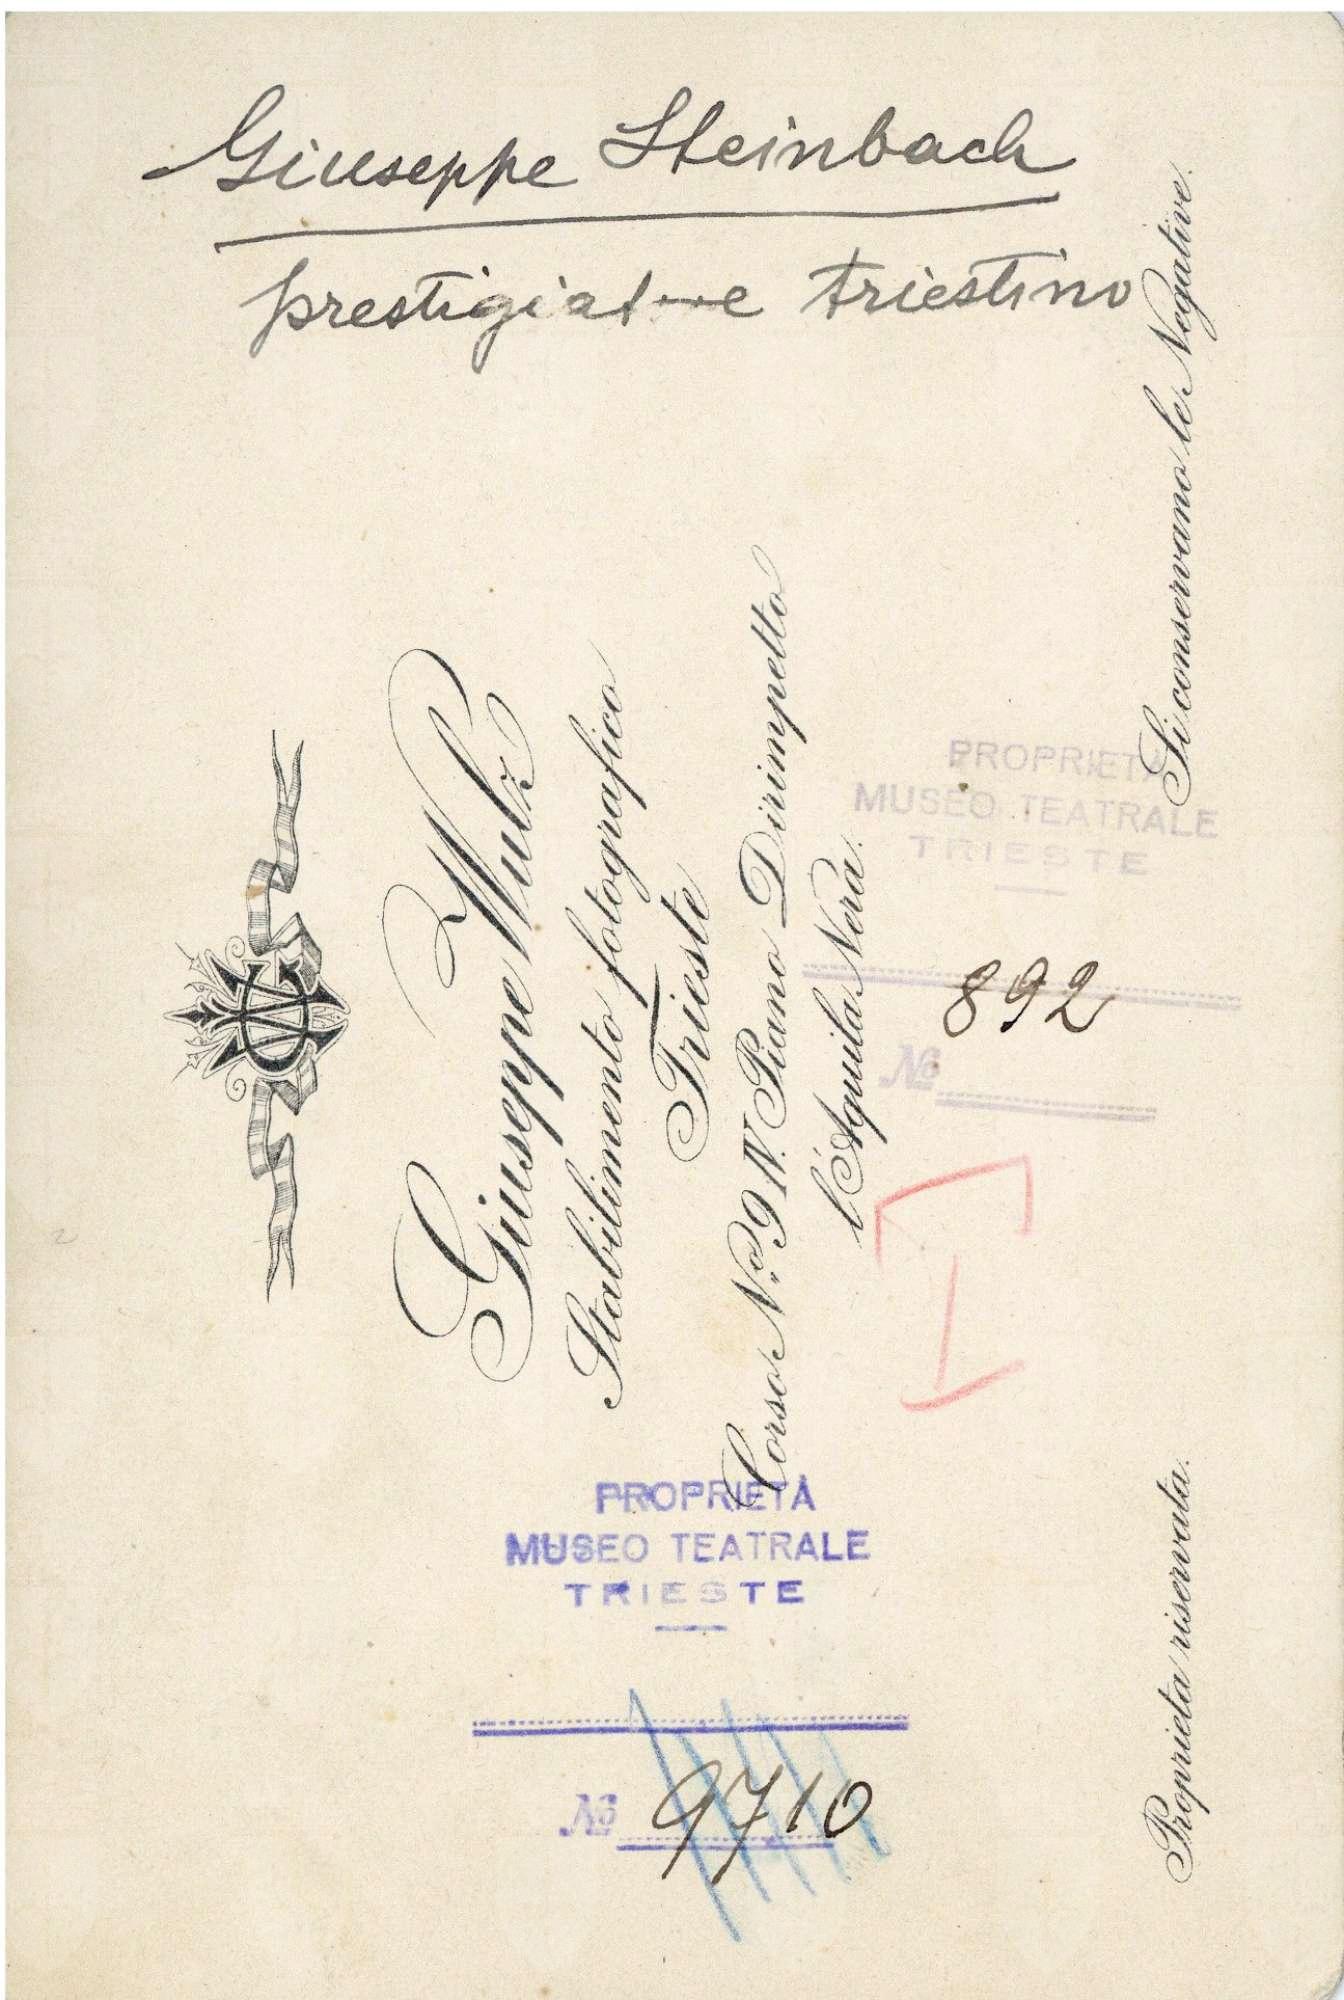 Giuseppe Steinbach
prestigiatore triestino
Giuseppe Wulz
Stabilimento fotografico
Trieste
Corso No. 9 IV. Piano Dirimpetto
l'Aquila Nera.
Proprieta riservata.
Si conservano le Negative.
PROPRIETÀ
MUSEO TEATRALE
TRIESTE
892
No
I
PROPRIETÀ
MUSEO TEATRALE
TRIESTE
No 9710